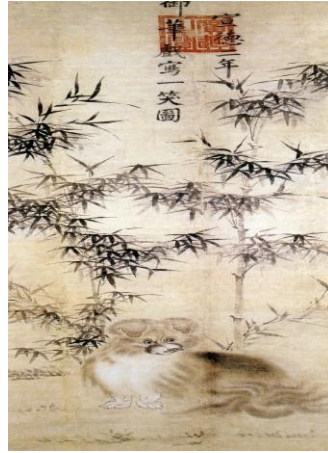 宣德年
御筆戲寫一笑圖